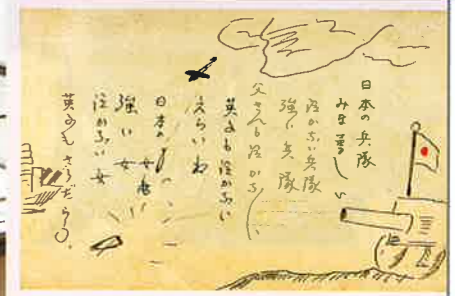 日本の兵隊
みな勇しい
泣かない兵隊
強い兵隊
父さんも泣かない
英子も泣かない
えらいね
日本の
強い女
泣かない女
英子もさうだらう。